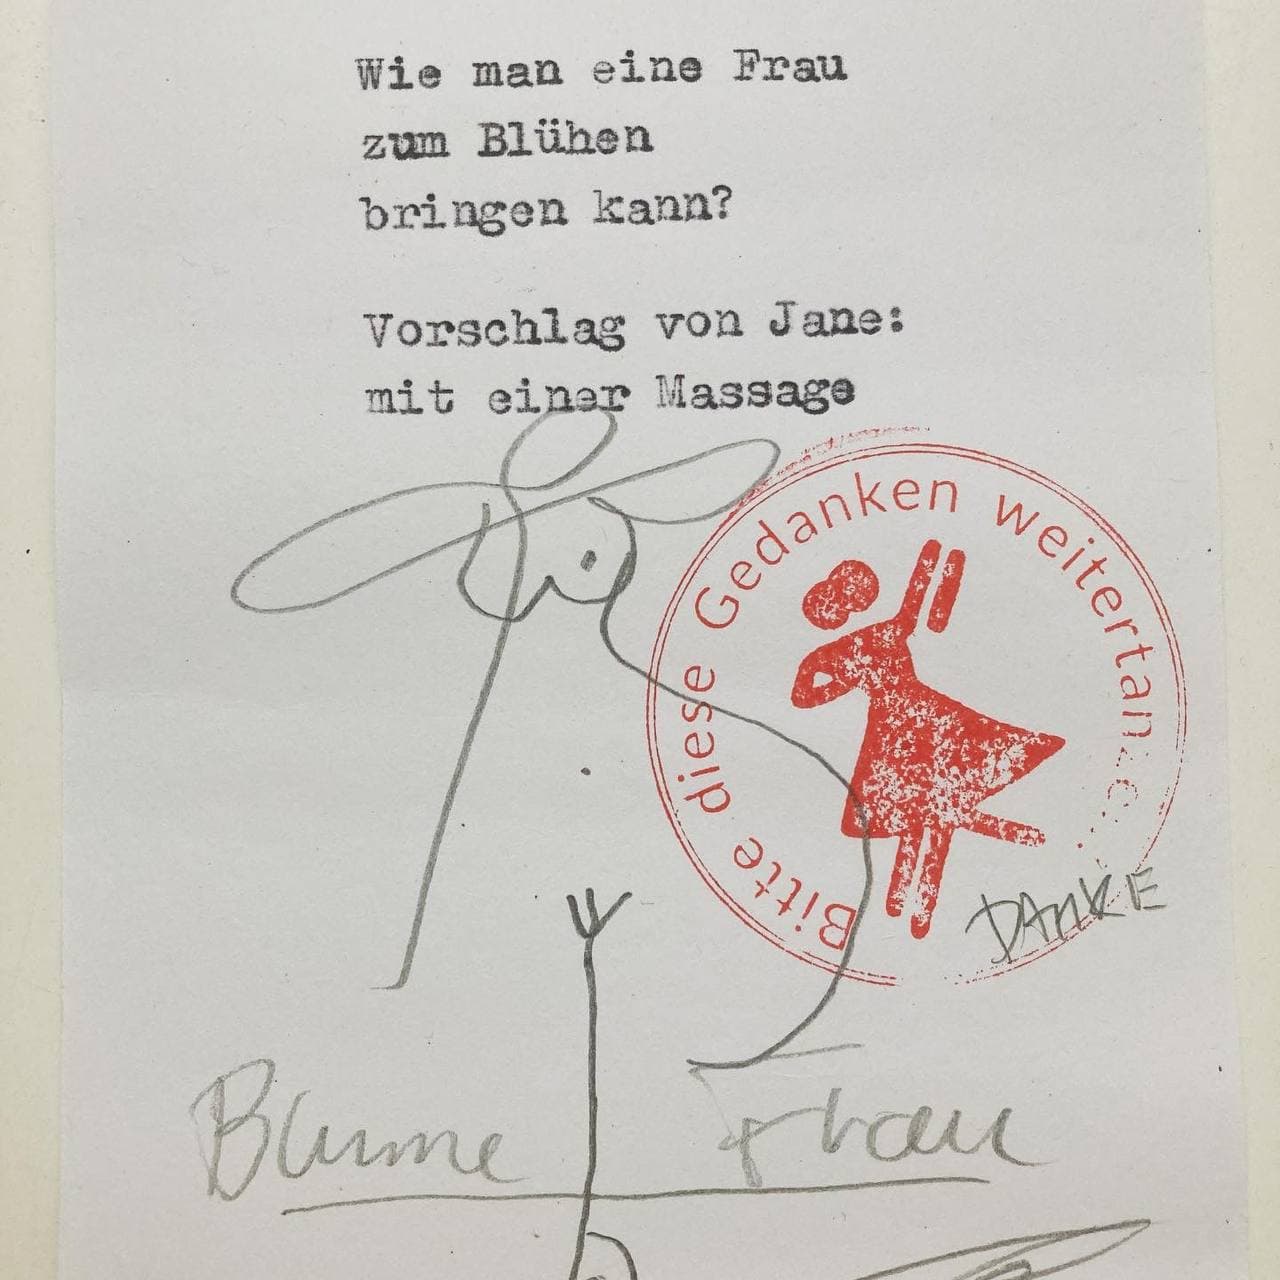 Wie man eine Frau
zum Blühen
bringen kann?
Vorschlag von Jane:
mit einer Massage
Bitte diese Gedanken weitertanzen
DANKE
Blume Frau